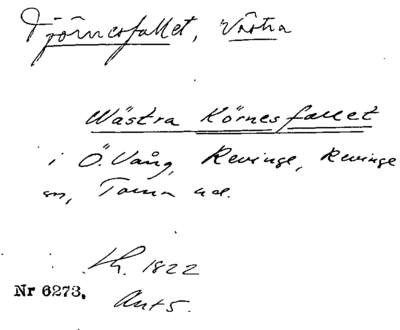 Tjörnesfallet, Västra
Wästra Körnesfallet
i Ö. Vång, Revinge, Revinge
sn, Torna hd.
1822
Nr 6273. Akt 5.